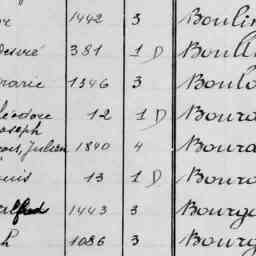 1442 3 Boulin
Désiré 381 1 D Boull
marie 1346 3 Boulo
éodore 12 1 D Bour
Joseph
Julien 1840 4 Bour
ouis 13 1 D Bour
Alfred 1443 3 Bourg
h 1086 3 Bourg